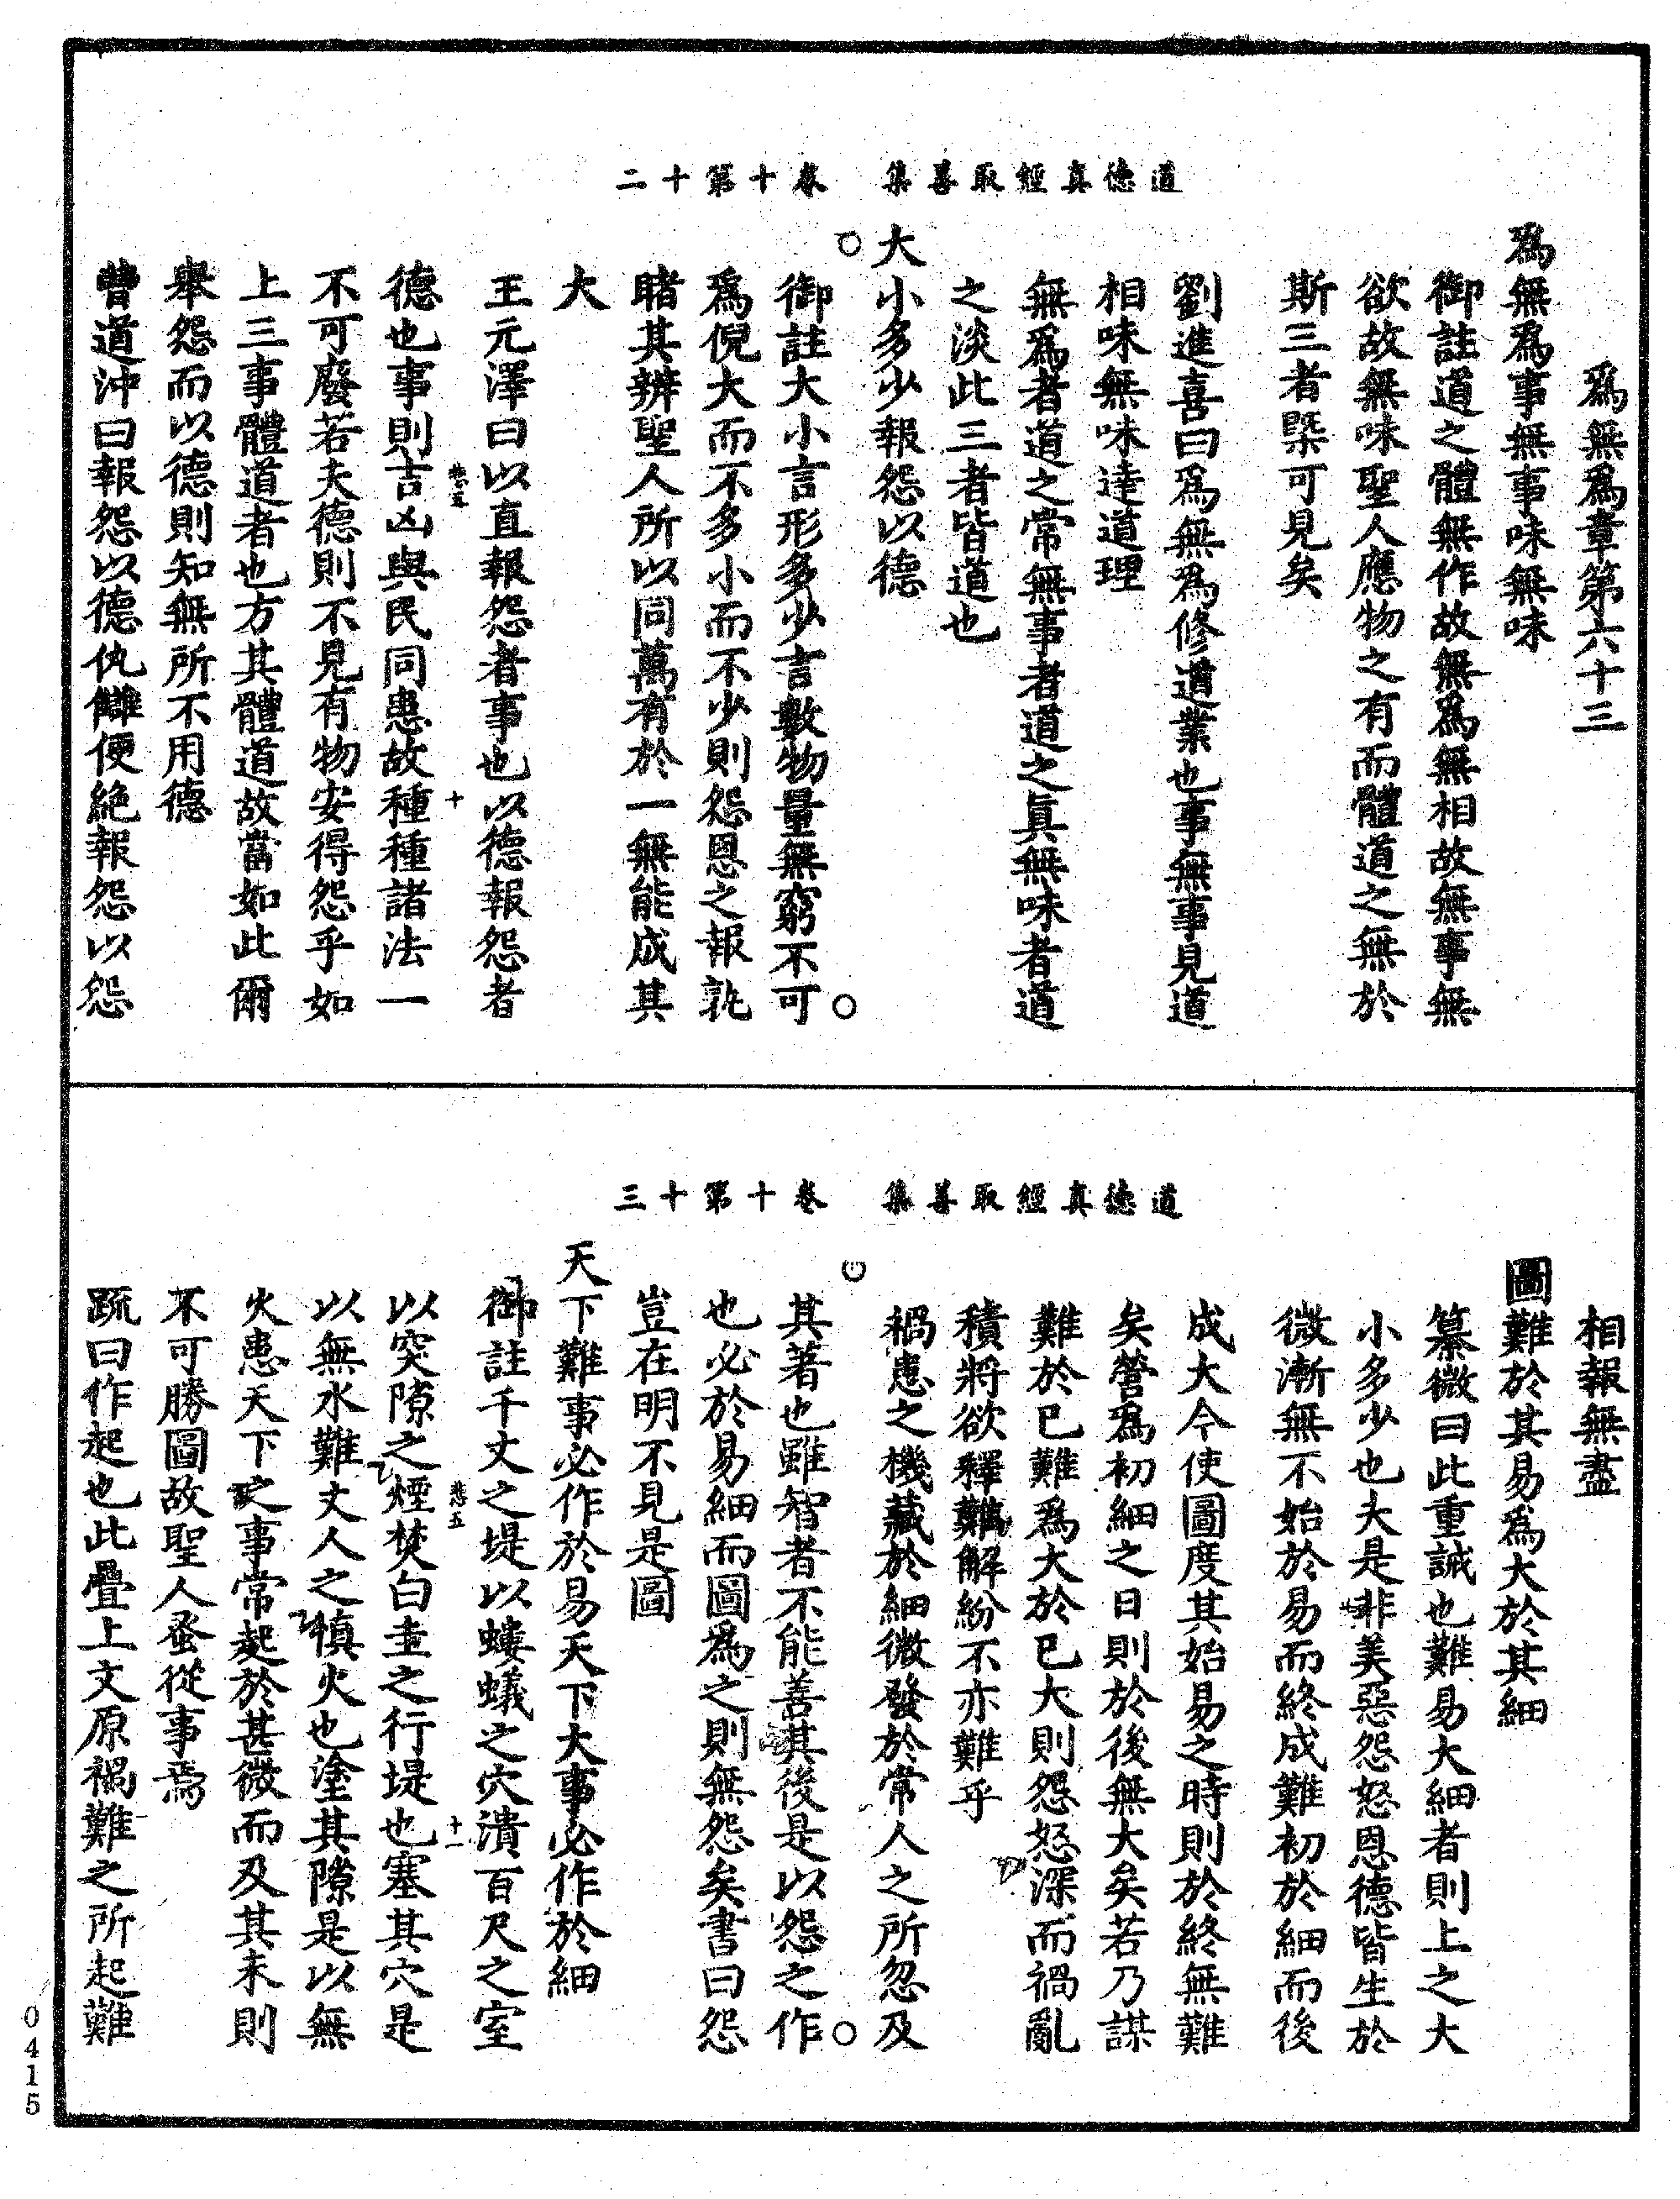 道德真經取善集　卷十第十二
爲無爲章第六十三
爲無爲事無事味無味
御註道之體無作故無爲無相故無事無
欲故無味聖人應物之有而體道之無於
斯三者槩可見矣
劉進喜曰爲無爲修道業也事無事見道
相味無味達道理
無爲者道之常無事者道之真無味者道
之淡此三者皆道也
大小多少報怨以德
御註大小言形多少言數物量無窮不可
爲倪大而不多小而不少則怨恩之報孰
睹其辨聖人所以同萬有於一無能成其
大
王元澤曰以直報怨者事也以德報怨者
悲五
十
德也事則吉凶與民同患故種種諸法一
不可廢若夫德則不見有物安得怨乎如
上三事體道者也方其體道故當如此爾
舉怨而以德則知無所不用德
曹道沖曰報怨以德仇讎便絶報怨以怨
道德真經取善集　卷十第十三
相報無盡
圖難於其易爲大於其細
纂微曰此重誡也難易大細者則上之大
小多少也夫是非美惡怨怒恩德皆生於
微漸無不始於易而終成難初於細而後
成大今使圖度其始易之時則於終無難
矣營爲初細之日則於後無大矣若乃謀
難於已難爲大於已大則怨怒深而禍亂
積將欲釋難解紛不亦難乎
禍患之機藏於細微發於常人之所忽及
其著也雖智者不能善其後是以怨之作
也必於易細而圖爲之則無怨矣書曰怨
豈在明不見是圖
天下難事必作於易天下大事必作於細
御註千丈之堤以螻蟻之穴潰百尺之室
悲五
十一
以突隙之煙焚白圭之行堤也塞其穴是
以無水難丈人之慎火也塗其隙是以無
火患天下之事常起於甚微而及其末則
不可勝圖故聖人蚤從事焉
疏曰作起也此疊上文原禍難之所起難
0415